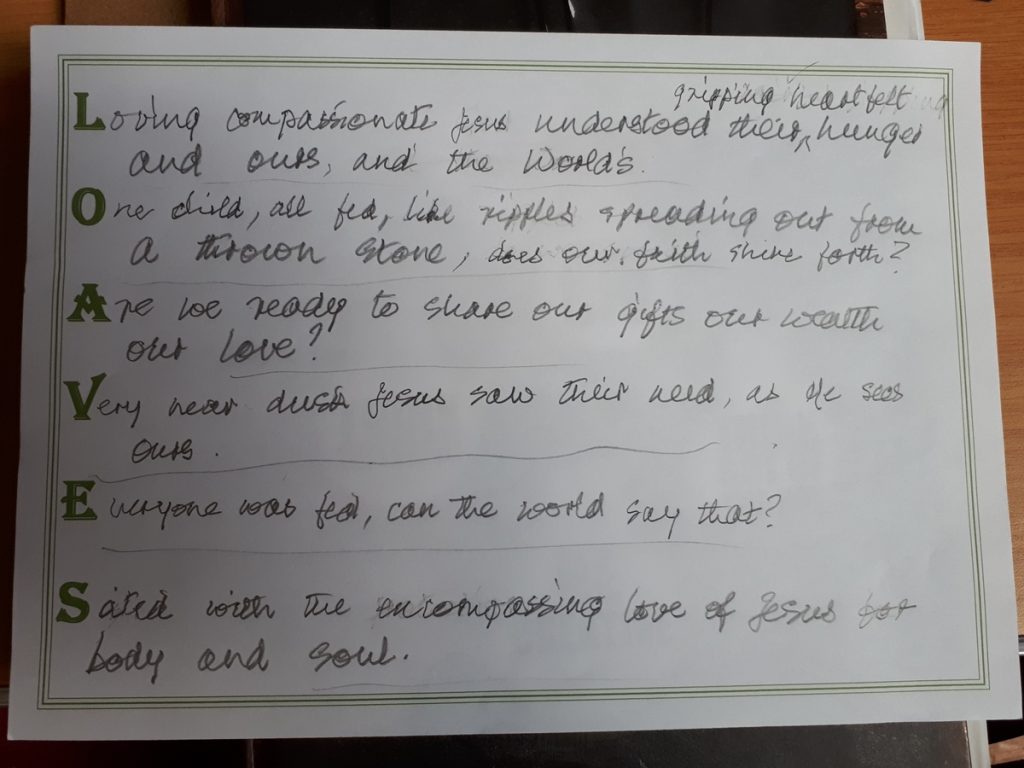 gripping heartfelt
Loving compassionate Jesus understood their, hunger
and ours, and the World's.
One child, all fed, like ripples spreading out from
a thrown stone, does our faith shine forth?
Are we ready to share our gifts our wealth
our love?
Very near dusk Jesus saw their need, as He sees
ours.
Everyone was fed, can the world say that?
Sated with the encompassing love of Jesus for
body and soul.